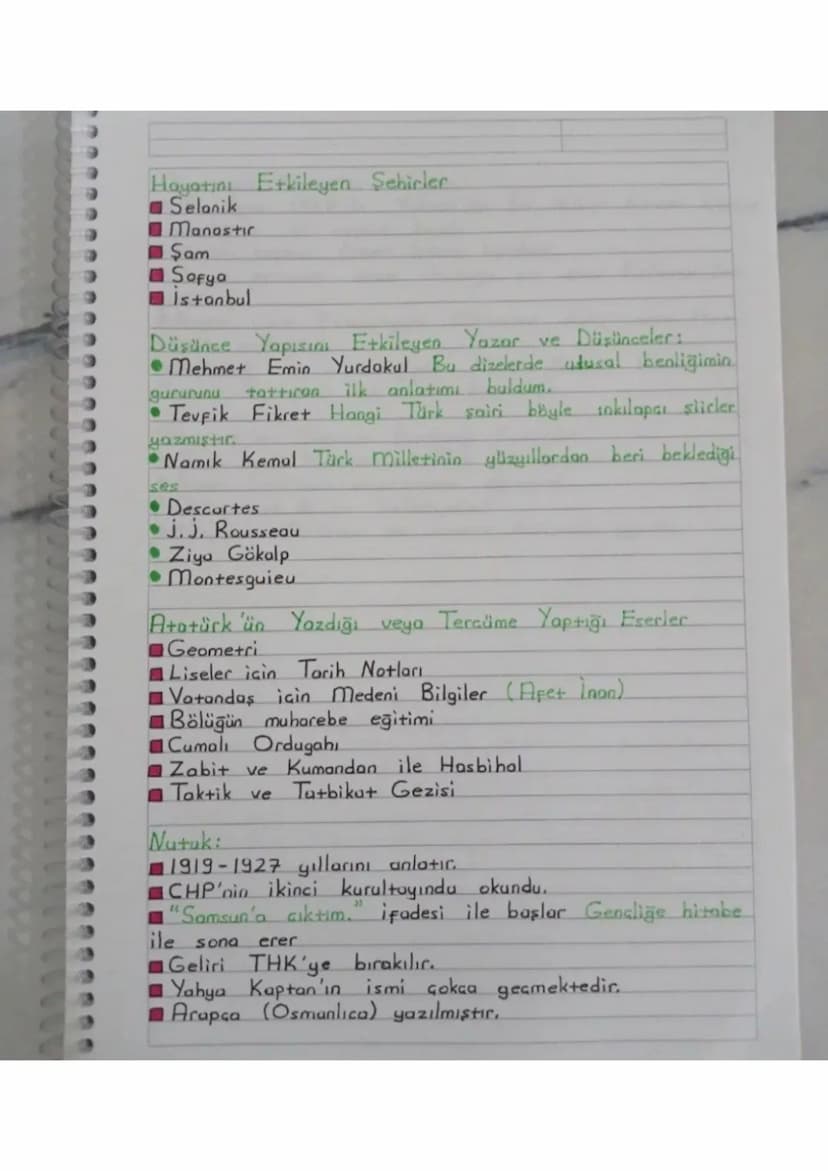 Hayatını Etkileyen Şehirler
Selanik
Manastır
Şam
Sofya
İstanbul
Düşünce Yapısını Etkileyen Yazar ve Düşünceler:
Mehmet Emin Yurdakul Bu dizelerde ulusal benliğimin
gururunu tattıran ilk anlatımı buldum.
Tevfik Fikret Hangi Türk şairi böyle inkılapçı şiirler
yazmıştır.
Namık Kemal Türk Milletinin yüzyıllardan beri beklediği
ses
Descartes
J.J. Rousseau
Ziya Gökalp
Montesguieu
Atatürk'ün Yazdığı veya Tercüme Yaptığı Eserler
Geometri
Liseler için Tarih Notları
Vatandaş için Medeni Bilgiler (Afet İnan)
Bölüğün muharebe eğitimi
Cumalı Ordugahı
Zabit ve Kumandan ile Hasbihal
Taktik ve Tatbikat Gezisi
Nutuk:
1919-1927 yıllarını anlatır.
CHP'nin ikinci kurultayında okundu.
"Samsun'a çıktım." ifadesi ile başlar Gençliğe hitabe
ile sona erer
Geliri THK'ye bırakılır.
Yahya Kaptan'ın ismi çokça geçmektedir.
Arapça (Osmanlıca) yazılmıştır.